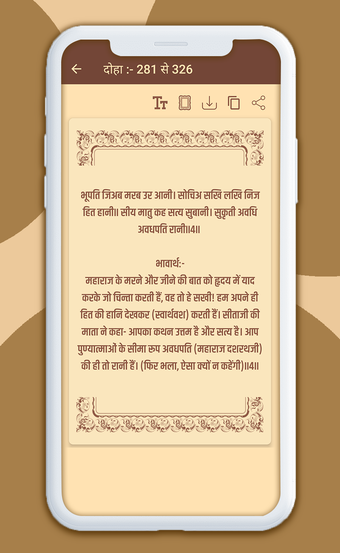 दोहा :- 281 से 326
TT
भूपति जिअब मरब उर आनी। सोचिअ सखि लखि निज
हित हानी॥ सीय मातु कह सत्य सुबानी। सुकृती अवधि
अवधपति रानी॥4॥
भावार्थ:-
महाराज के मरने और जीने की बात को हृदय में याद
करके जो चिन्ता करती हैं, वह तो हे सखी! हम अपने ही
हित की हानि देखकर (स्वार्थवश) करती हैं। सीताजी की
माता ने कहा- आपका कथन उत्तम है और सत्य है। आप
पुण्यात्माओं के सीमा रूप अवधपति (महाराज दशरथजी)
की ही तो रानी हैं। (फिर भला, ऐसा क्यों न कहेंगी)॥4॥